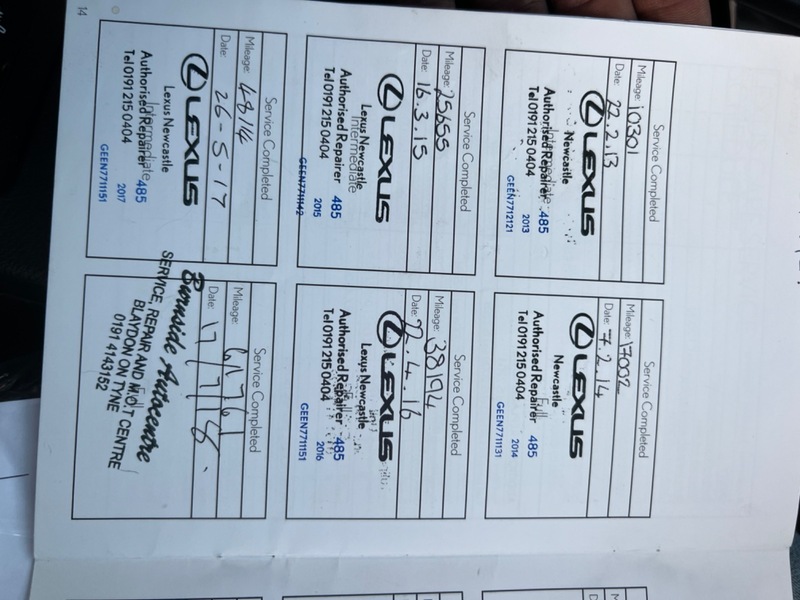 Service Completed
Mileage: 10301
Date: 22.2.13
LEXUS
Newcastle
Intermediate
Authorised Repairer 485
Tel 0191 215 0404 2013
GEEN7712121
Service Completed
Mileage: 17092
Date: 7.2.14
LEXUS
Newcastle
Full
Authorised Repairer 485
Tel 0191 215 0404 2014
GEEN7711131
Service Completed
Mileage: 25655
Date: 16.3.15
LEXUS
Lexus Newcastle
Intermediate
Authorised Repairer 485
Tel 0191 215 0404 2015
GEEN7711142
Service Completed
Mileage: 38194
Date: 22.4.16
LEXUS
Lexus Newcastle
Authorised Repairer 485
Tel 0191 215 0404 2016
GEEN7711151
Service Completed
Mileage: 48114
Date: 26-5-17
LEXUS
Lexus Newcastle
Intermediate
Authorised Repairer 485
Tel 0191 215 0404 2017
GEEN7711151
Service Completed
Mileage: 61761
Date: 17/7/18.
Burnside Autocentre
SERVICE, REPAIR AND M.O.T CENTRE
BLAYDON ON TYNE
0191 4143152
14